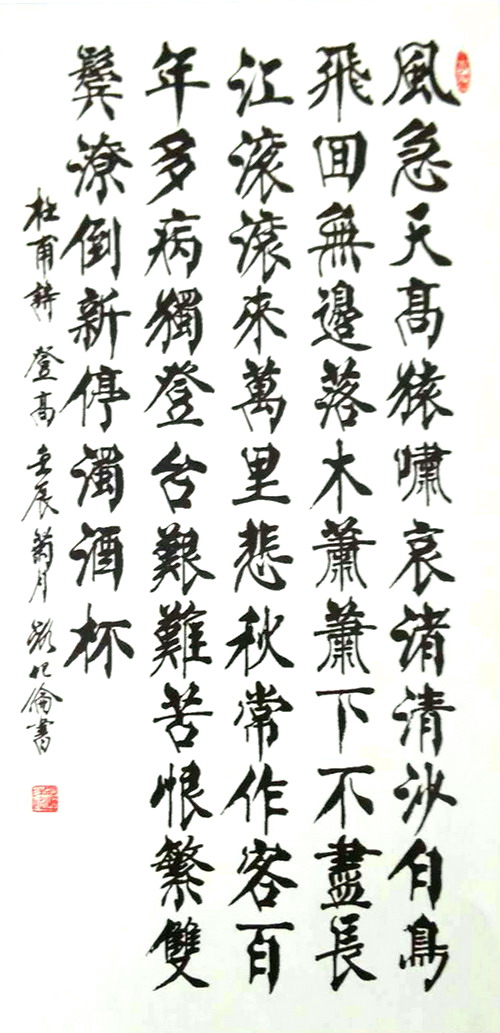 風急天高猿嘯哀渚清沙白鳥
飛回無邊落木蕭蕭下不盡長
江滾滾來萬里悲秋常作客百
年多病獨登台艱難苦恨繁雙
鬢潦倒新停濁酒杯
杜甫詩 登高 壬辰菊月 倫書